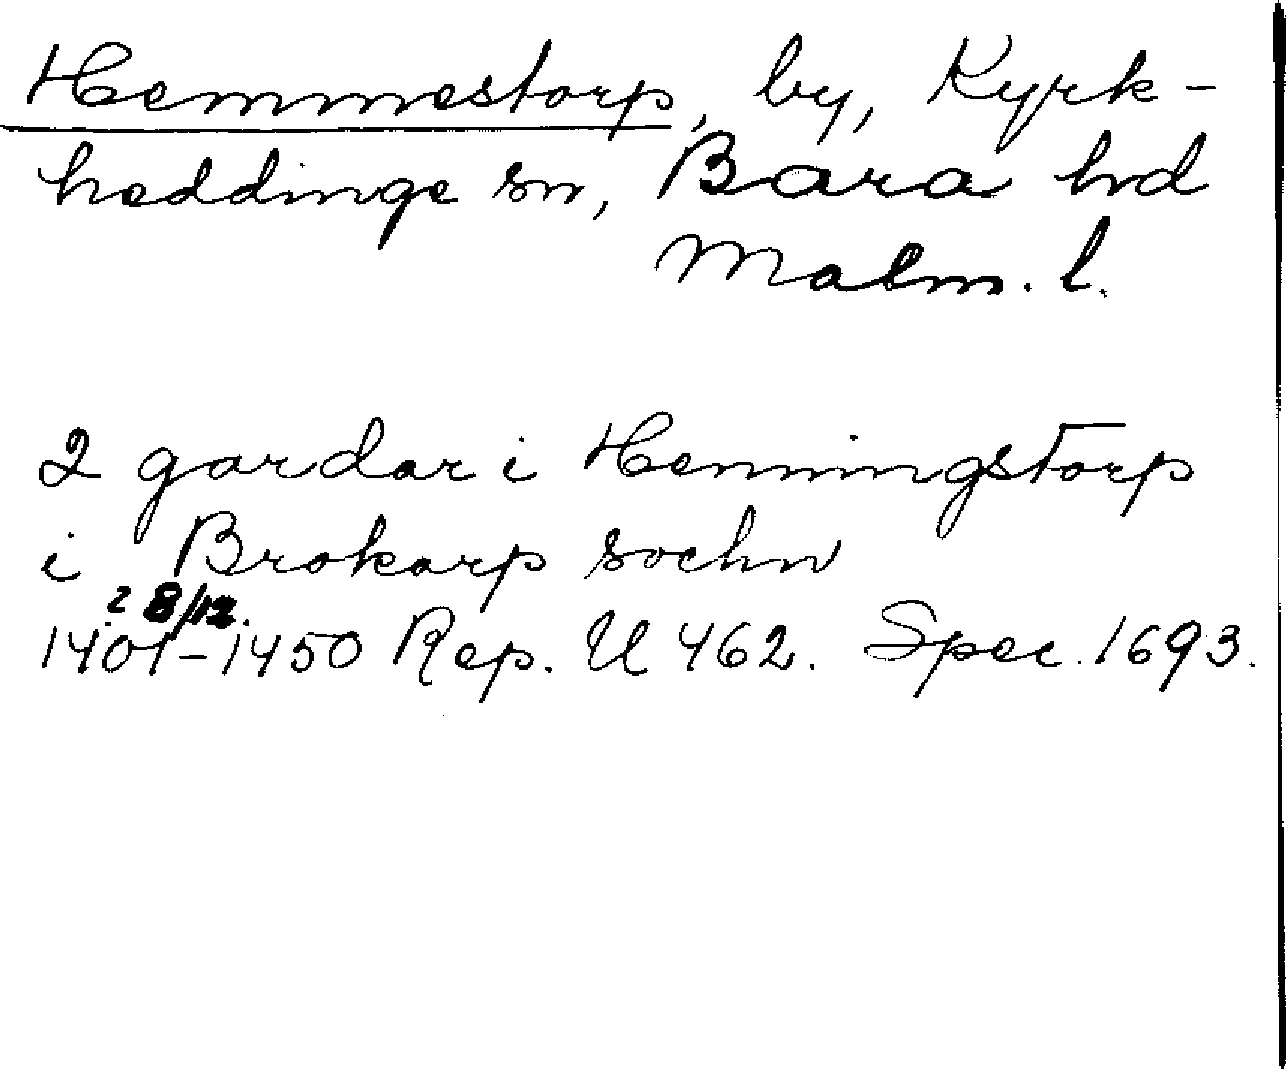 Hemmestorp, by, Kyrk-
heddinge sn, Bara hd
Malm. l.
2 gardar i Henningstorp
i Brokarp sochn
2 8/12.
1401-1450 Rep. U 462. Spec. 1693.